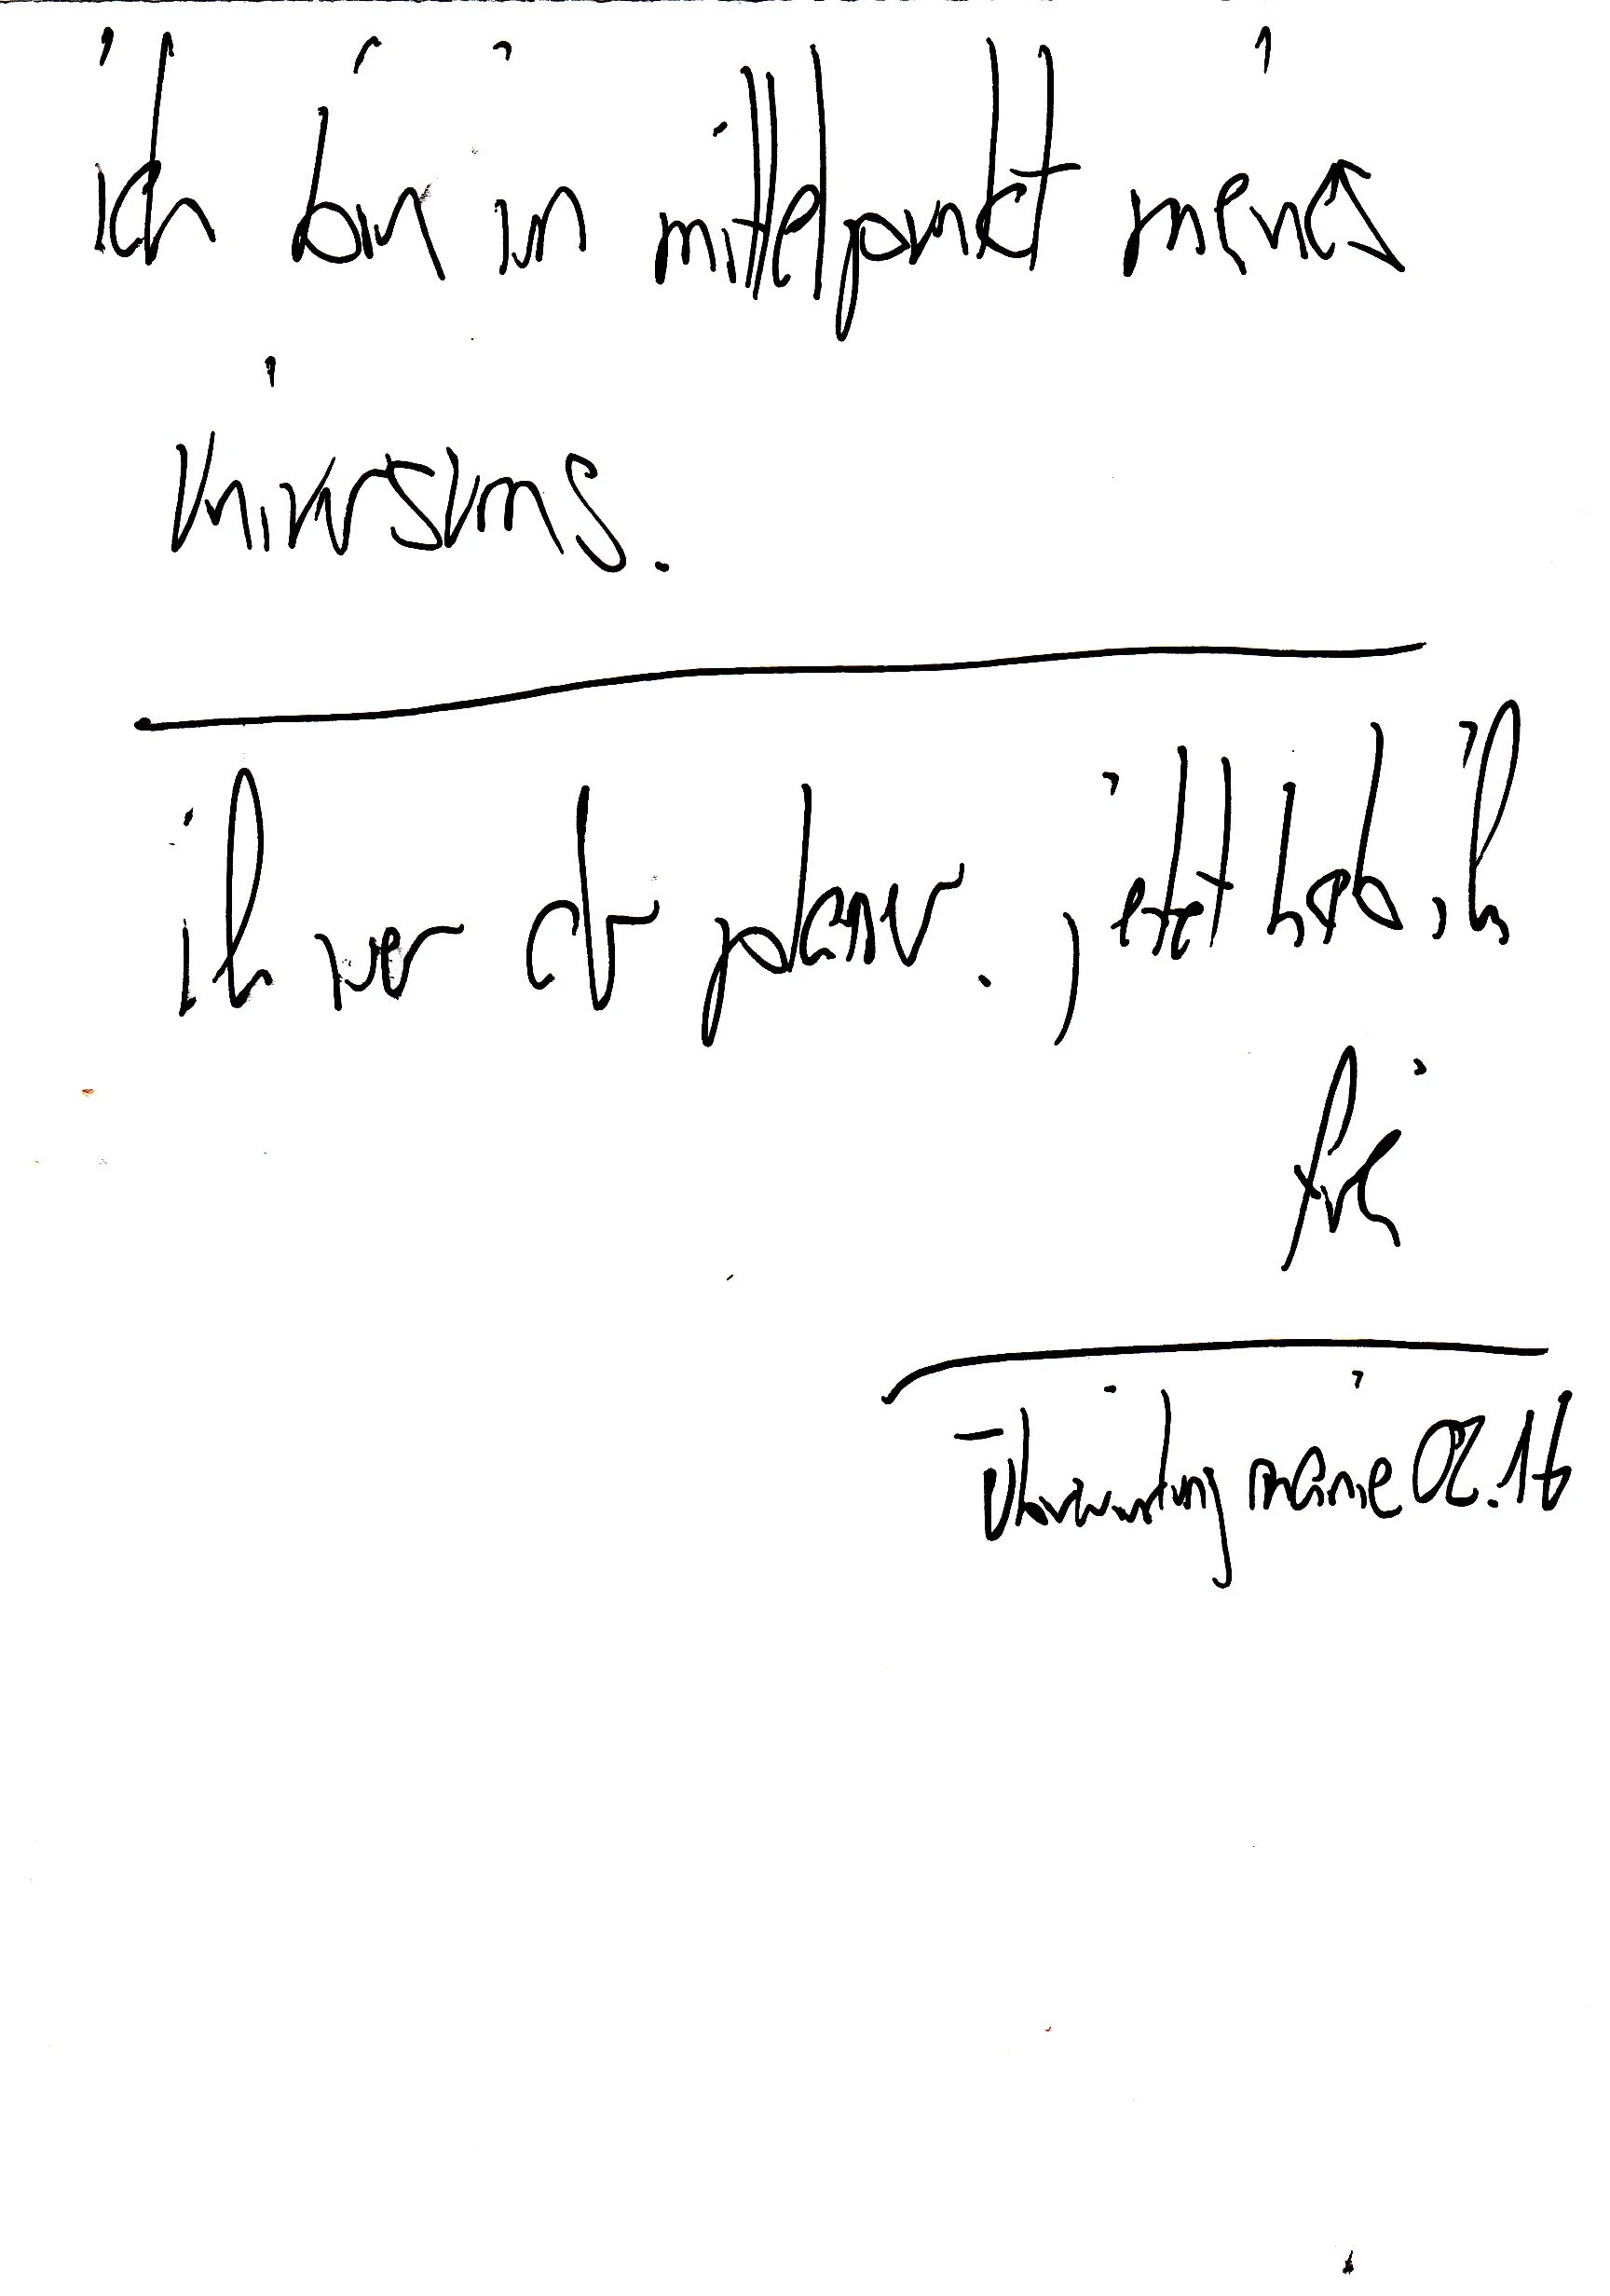 ich bin im mittelpunkt meines
universums.
ich war der planer. jetzt hab ich
frei
Überwindung manie 02.16